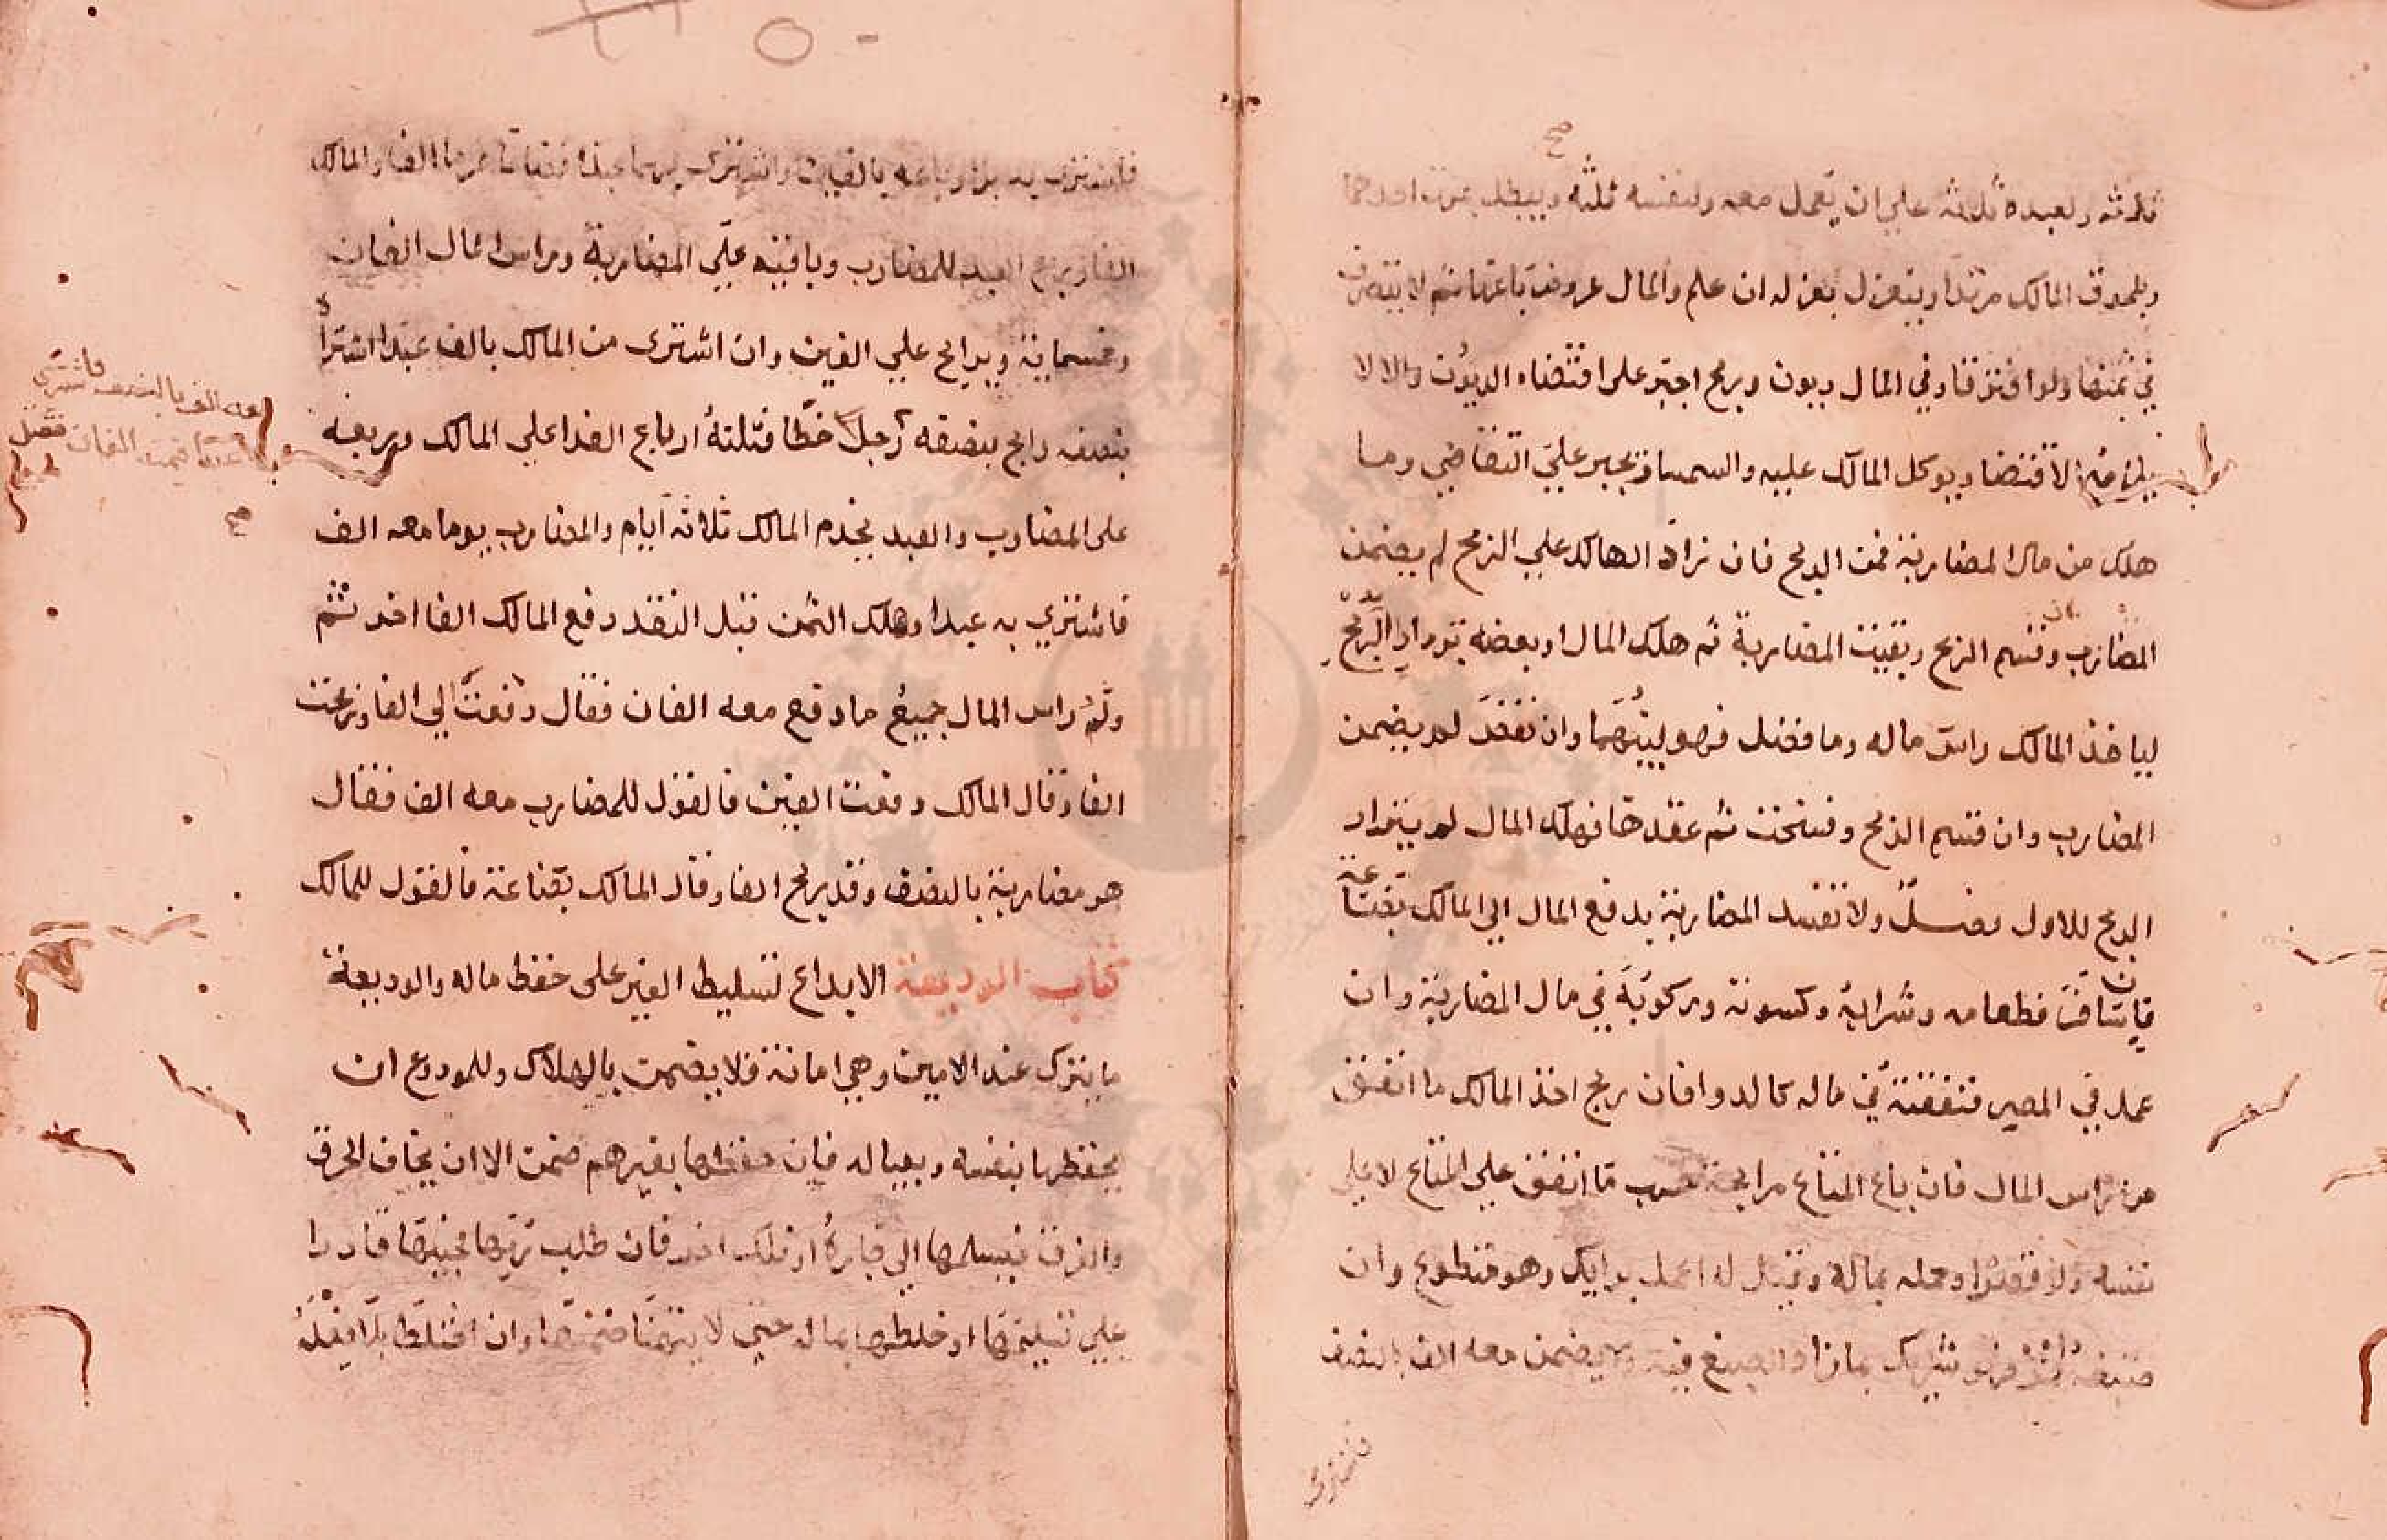 ثلثه ولعبده ثلثه على ان يعمل معه ولنفسه ثلثه ويبطل بموت احدهما
وبلحوق المالك مرتدا وينعزل بعزله ان علم والمال عروض باعها ثم لا يتصرف
في ثمنها ولو افترقا وفي المال ديون وربح اجبر على اقتضاء الديون والا لا
يلزمه الاقتضا ويوكل المالك عليه والسمسار يجبر علي التقاضي وما
هلك من مال المضاربة فمن الربح فان زاد الهالك علي الربح لم يضمن
المضارب وان قسم الربح وبقيت المضاربة ثم هلك المال او بعضه ترادا الربح
لياخذ المالك راس ماله وما فضل فهو بينهما وان نقص لم يضمن
المضارب وان قسم الربح وفسخت ثم عقداها فهلك المال لم يترادا
الربح للاول فصل ولا تفسد المضاربة بدفع المال الي المالك بضاعة
فان سافر فطعامه وشرابه وكسوته وركوبه في مال المضاربة وان
عمل في المصر فنفقته في ماله كالدوا فان ربح اخذ المالك ما انفق
من راس المال فان باع المتاع مرابحة حسب ما انفق علي المتاع لا علي
نفسه ولو قصره او حمله بماله وقيل له اعمل برايك وهو متطوع وان
صبغه احمر فهو شريك بما زاد الصبغ فيه ولا يضمن معه الف بالنصف
فاشترى
فاشترى به بزا وباعه بالفين واشترى بهما عبدا فضاعا غرما الفا والمالك
الفا وربع العبد للمضارب وباقيه علي المضاربة وراس المال الفان
وخمسماية ويرابح علي الفين وان اشترى من المالك بالف عبدا اشتراه
بنصفه رابح بنصفه
معه الف بالنصف فاشترى
به عبدا قيمته الفان فقتل
رجلا خطا فثلثة ارباع الفدا علي المالك وربعه
على المضارب والعبد يخدم المالك ثلاثة ايام والمضارب يوما معه الف
فاشتري به عبدا وهلك الثمن قبل النقد دفع المالك الفا اخر ثم ثم
وراس المال جميع ما دفع معه الفان فقال دفعت الي الفا وربحت
الفا وقال المالك دفعت الفين فالقول للمضارب معه الف فقال
هو مضاربة بالنصف وقد ربح الفا وقال المالك بضاعة فالقول للمالك
كتاب الوديعة الايداع تسليط الغير على حفظ ماله والوديعة
ما يترك عند الامين وهي امانة فلا يضمن بالهلاك وللمودع ان
يحفظها بنفسه وبعياله فان حفظها بغيرهم ضمن الا ان يخاف الحرق
والغرق فيسلمها الي جاره او فلك اخر فان طلب ربها فحبسها قادرا
علي تسليمها او خلطها بماله حتي لا يتميز ضمنها وان اختلط بلا فعله